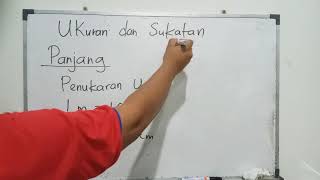 UKuran dan Sukatan
Panjang
Penukaran U
1 m = 10
cm